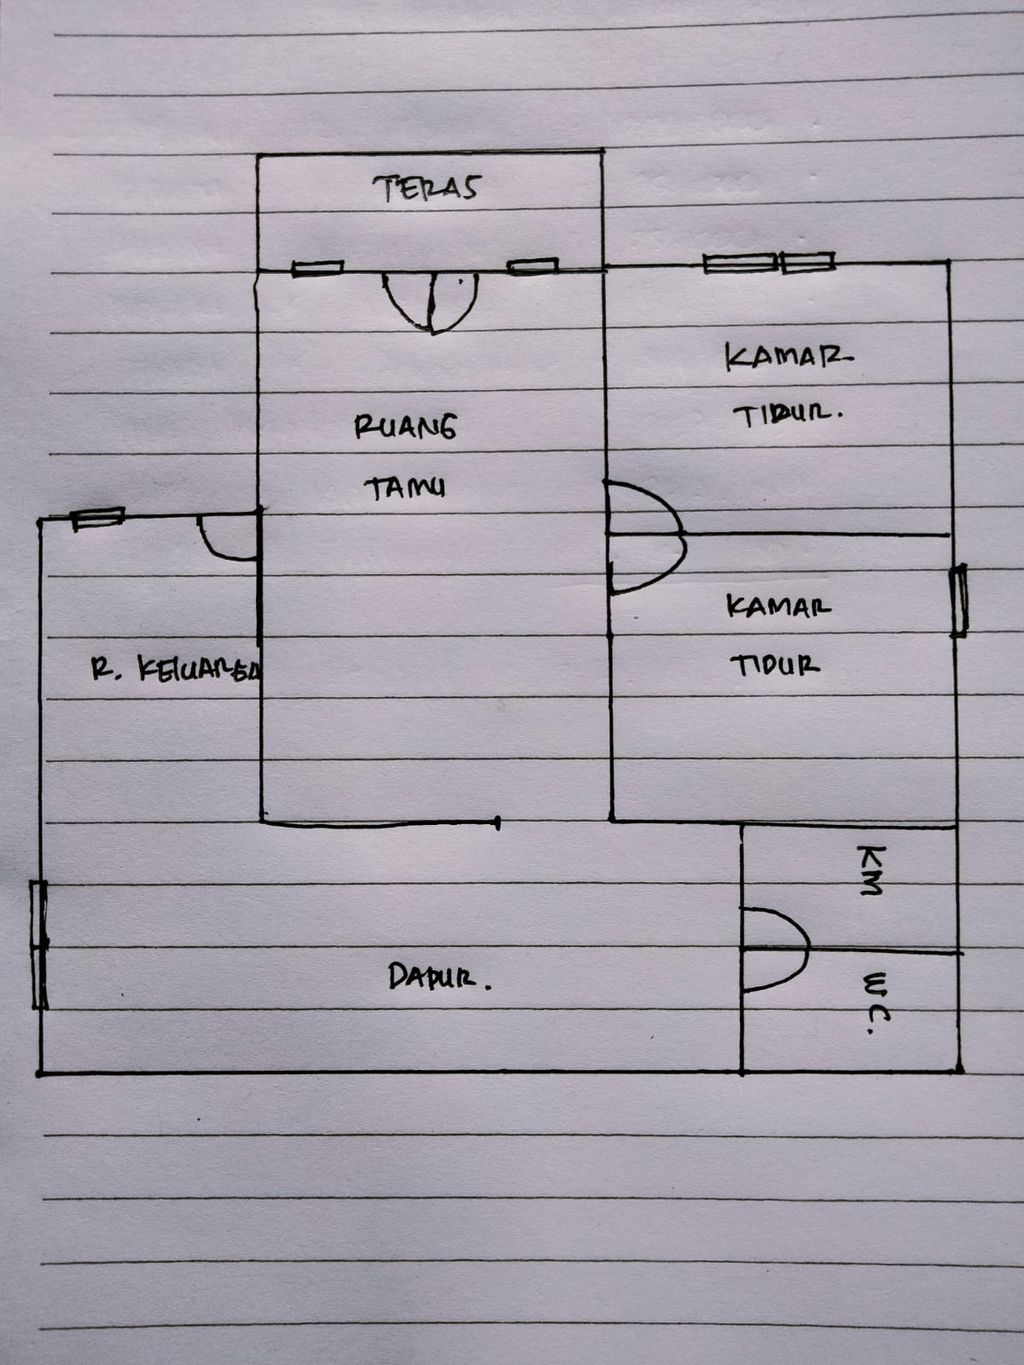 TERAS
KAMAR
TIDUR.
RUANG
TAMU
KAMAR
TIDUR
R. KELUARGA
KM
DAPUR.
WC.